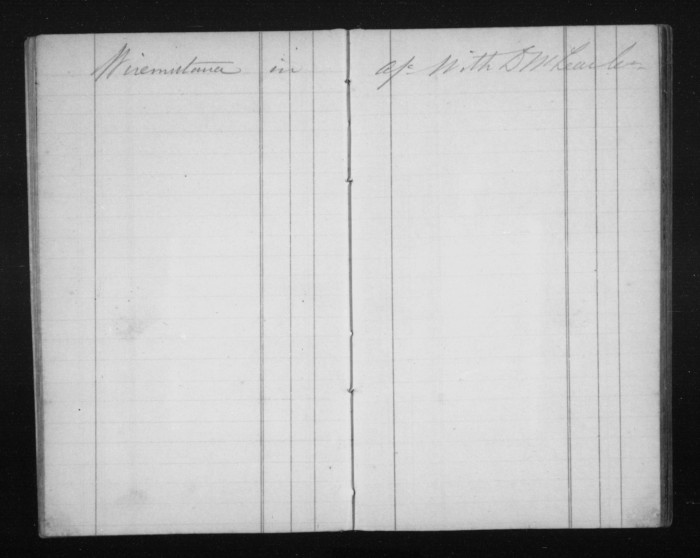 Wiremutana in a/c With D McLean